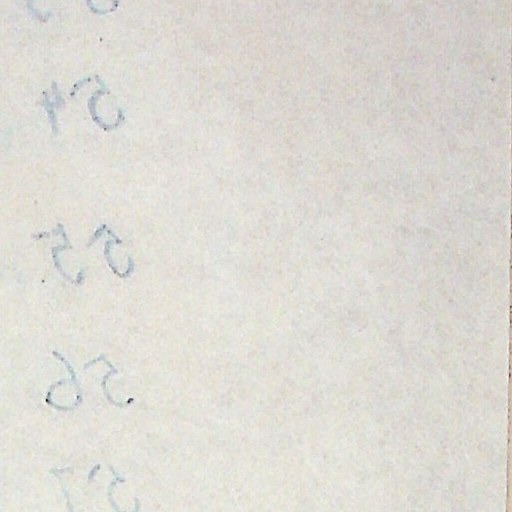 54
55
56
57